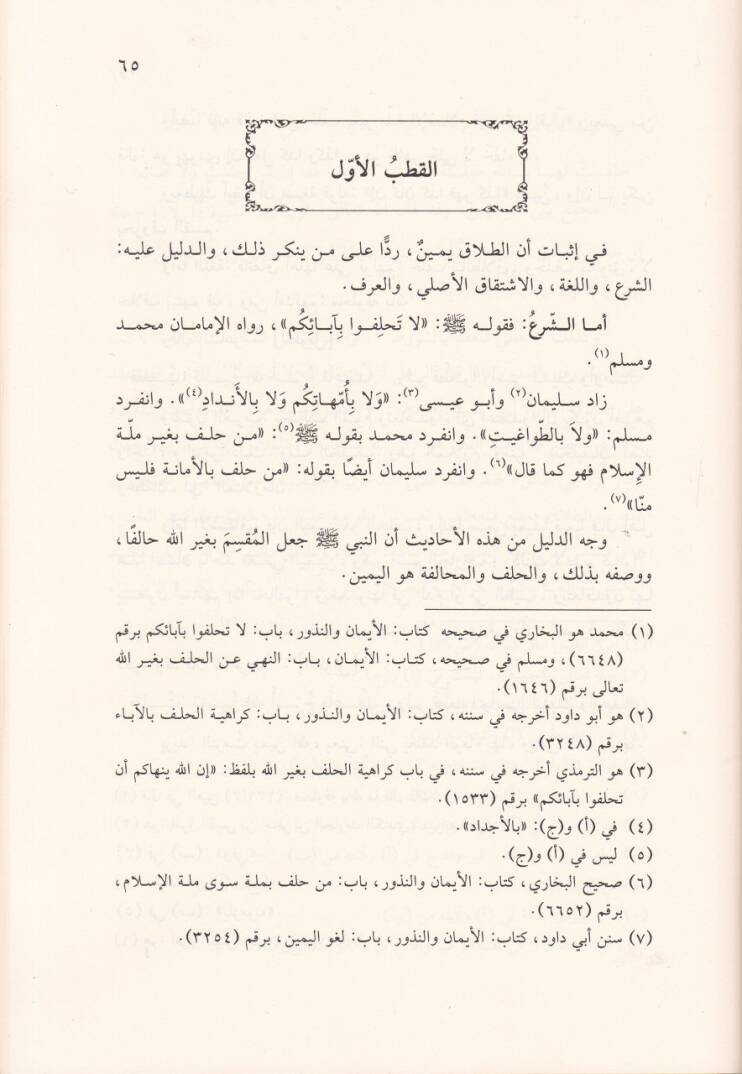 ٦٥
القطبُ الأوّل
في إثبات أن الطلاق يمينٌ، ردًّا على من ينكر ذلك، والدليل عليه:
الشرع، واللغة، والاشتقاق الأصلي، والعرف.
أما الشّرعُ: فقوله ﷺ: «لا تَحلِفوا بِآبائِكُم»، رواه الإمامان محمد
ومسلم(١).
زاد سليمان(٢) وأبو عيسى(٣): «وَلا بِأُمّهاتِكُم وَلا بِالأَندادِ(٤)». وانفرد
مسلم: «ولاَ بالطّواغيتِ». وانفرد محمد بقوله ﷺ(٥): «من حلف بغير ملّة
الإِسلام فهو كما قال»(٦). وانفرد سليمان أيضًا بقوله: «من حلف بالأمانة فليس
منّا»(٧).
وجه الدليل من هذه الأحاديث أن النبي ﷺ جعل المُقسِمَ بغير الله حالفًا،
ووصفه بذلك، والحلف والمحالفة هو اليمين.
(١) محمد هو البخاري في صحيحه كتاب: الأيمان والنذور، باب: لا تحلفوا بآبائكم برقم
(٦٦٤٨)، ومسلم في صحيحه، كتاب: الأيمان، باب: النهي عن الحلف بغير الله
تعالى برقم (١٦٤٦).
(٢) هو أبو داود أخرجه في سننه، كتاب: الأيمان والنذور، باب: كراهية الحلف بالآباء
برقم (٣٢٤٨).
(٣) هو الترمذي أخرجه في سننه، في باب كراهية الحلف بغير الله بلفظ: «إن الله ينهاكم أن
تحلفوا بآبائكم» برقم (١٥٣٣).
(٤) في (أ) و(ج): «بالأجداد».
(٥) ليس في (أ) و(ج).
(٦) صحيح البخاري، كتاب: الأيمان والنذور، باب: من حلف بملة سوى ملة الإسلام،
برقم (٦٦٥٢).
(٧) سنن أبي داود، كتاب: الأيمان والنذور، باب: لغو اليمين، برقم (٣٢٥٤).